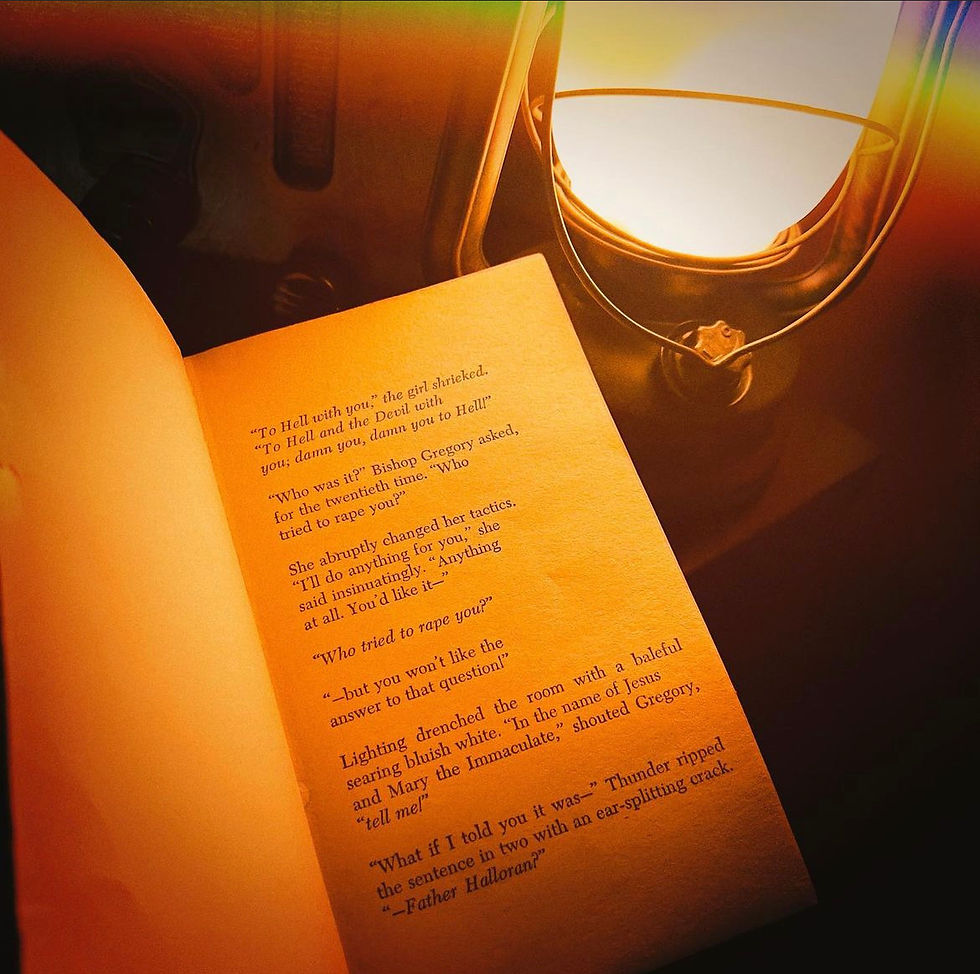 “To Hell with you,” the girl shrieked.
“To Hell and the Devil with
you; damn you, damn you to Hell!”
“Who was it?” Bishop Gregory asked,
for the twentieth time. “Who
tried to rape you?”
She abruptly changed her tactics.
“I’ll do anything for you,” she
said insinuatingly. “Anything
at all. You’d like it—”
“Who tried to rape you?”
“—but you won’t like the
answer to that question!”
Lighting drenched the room with a baleful
searing bluish white. “In the name of Jesus
and Mary the Immaculate,” shouted Gregory,
“tell me!”
“What if I told you it was—” Thunder ripped
the sentence in two with an ear-splitting crack.
“—Father Halloran?”